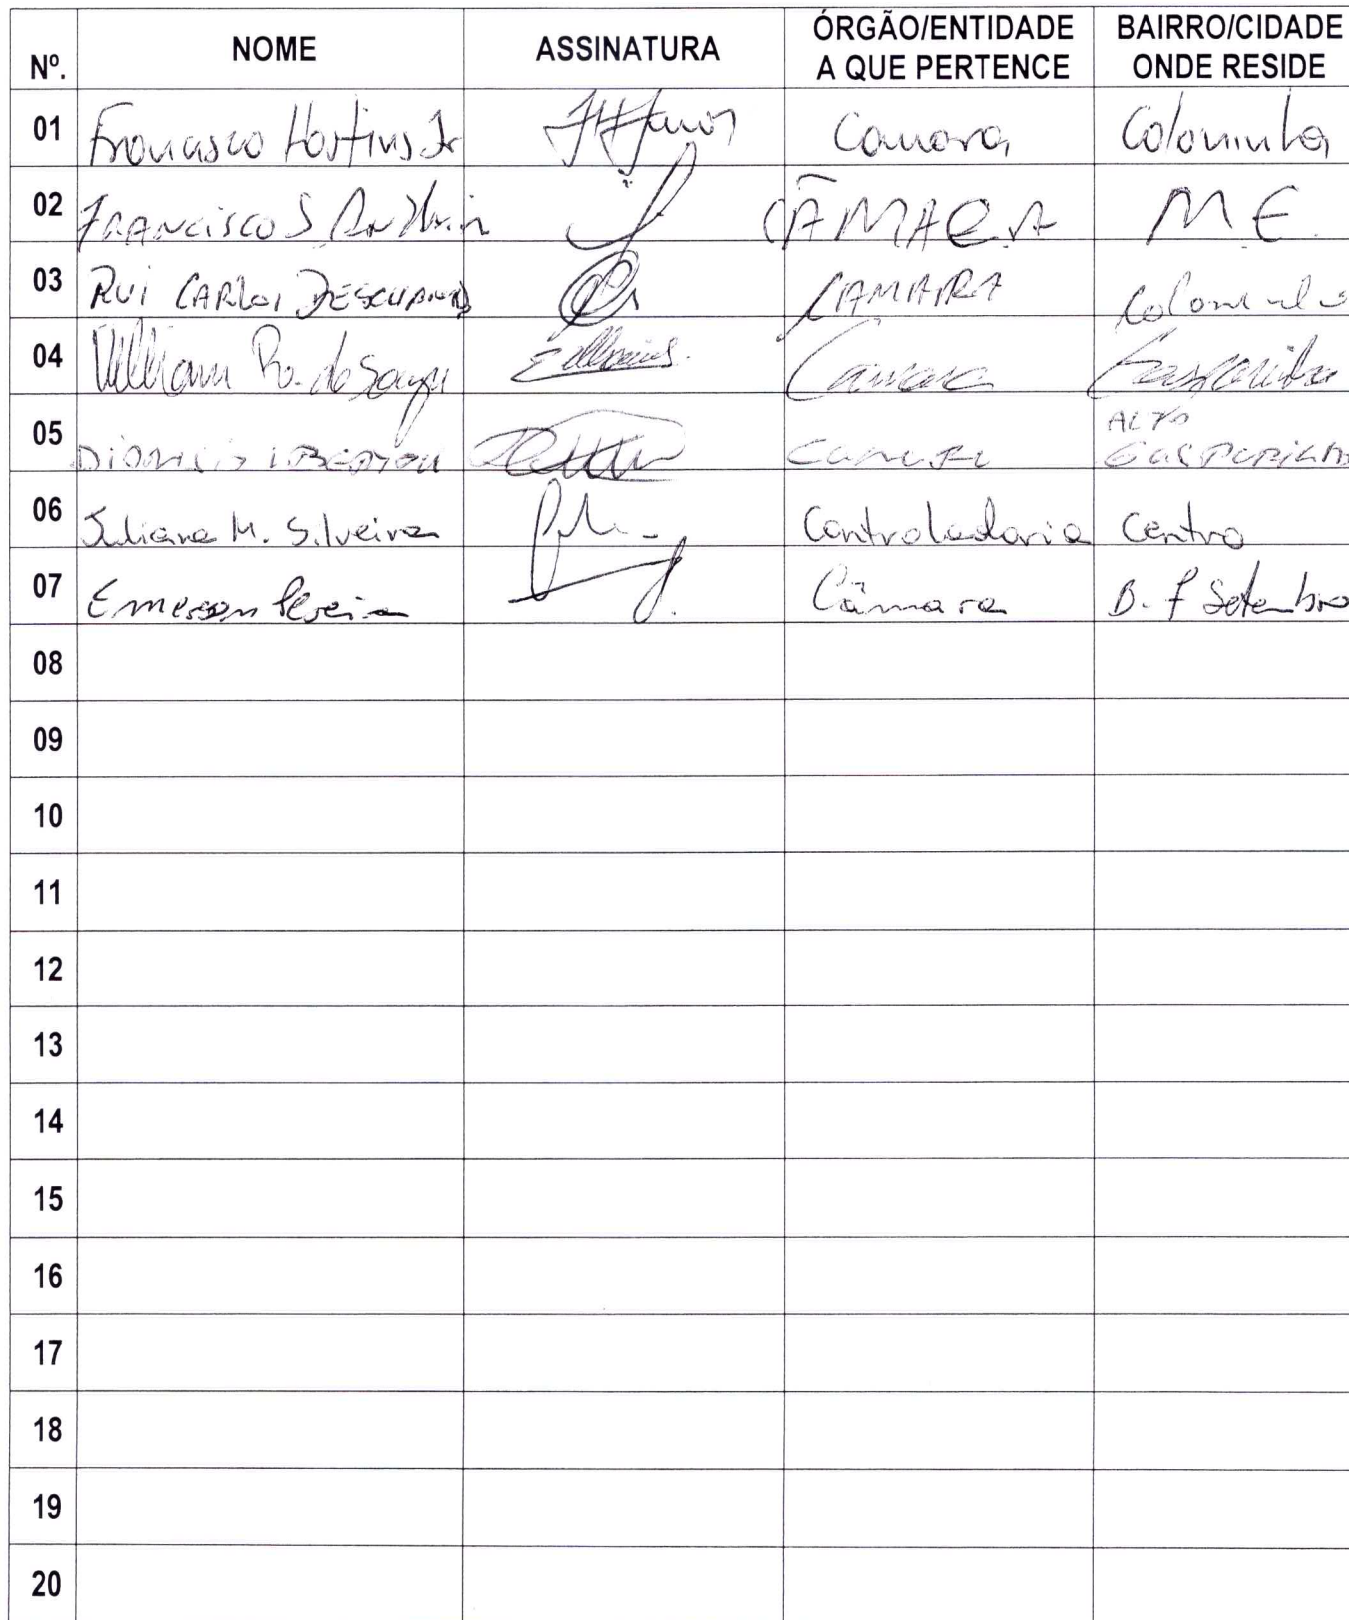 Nº. NOME ASSINATURA ÓRGÃO/ENTIDADE A QUE PERTENCE BAIRRO/CIDADE ONDE RESIDE
01 Francisco Hostins Jr Camara Coloninha
02 FRANCISCO S CÂMARA M E.
03 RUI CARLOS DESCHAMPS CAMARA
04 de Souza Camara Gasparinho
05 ALTO GASPARINHO
06 Juliana M. Silveira Controladoria Centro
07 Emerson Pereira Câmara B. 7 Setembro
08
09
10
11
12
13
14
15
16
17
18
19
20